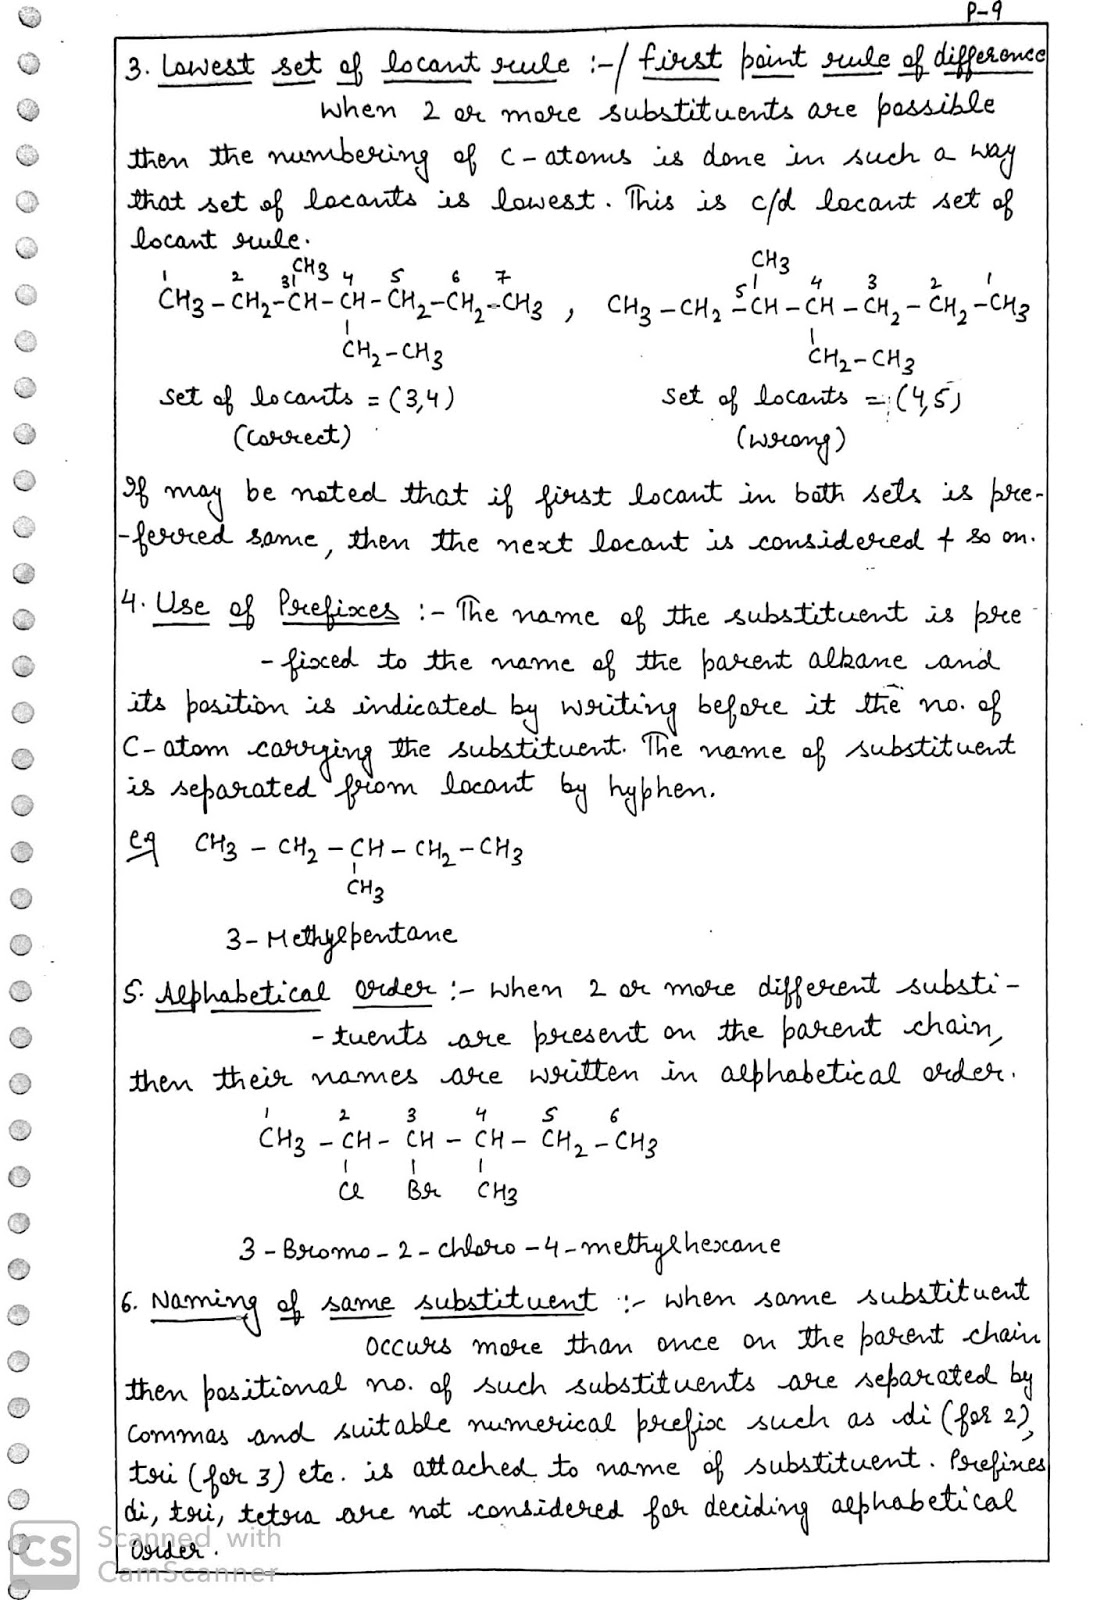 P-9
3. Lowest set of locant rule :-/ first point rule of difference
When 2 or more substituents are possible
then the numbering of C-atoms is done in such a way
that set of locants is lowest. This is c/d locant set of
locant rule.
CH3 CH3
1 2 3 4 5 6 7 5 4 3 2 1
CH3 - CH2 - CH - CH - CH2 - CH2 - CH3 , CH3 - CH2 - CH - CH - CH2 - CH2 - CH3
CH2 - CH3 CH2 - CH3
set of locants = (3,4) set of locants = (4,5)
(correct) (wrong)
If may be noted that if first locant in both sets is pre-
-ferred same, then the next locant is considered & so on.
4. Use of Prefixes :- The name of the substituent is pre-
-fixed to the name of the parent alkane and
its position is indicated by writing before it the no. of
C-atom carrying the substituent. The name of substituent
is separated from locant by hyphen.
eg CH3 - CH2 - CH - CH2 - CH3
CH3
3-Methylpentane
5. Alphabetical order :- When 2 or more different substi-
-tuents are present on the parent chain,
then their names are written in alphabetical order.
1 2 3 4 5 6
CH3 - CH - CH - CH - CH2 - CH3
Cl Br CH3
3-Bromo-2-chloro-4-methylhexane
6. Naming of same substituent :- When same substituent
occurs more than once on the parent chain
then positional no. of such substituents are separated by
commas and suitable numerical prefix such as di (for 2),
tri (for 3) etc. is attached to name of substituent. Prefixes
di, tri, tetra are not considered for deciding alphabetical
order.
CS Scanned with
CamScanner